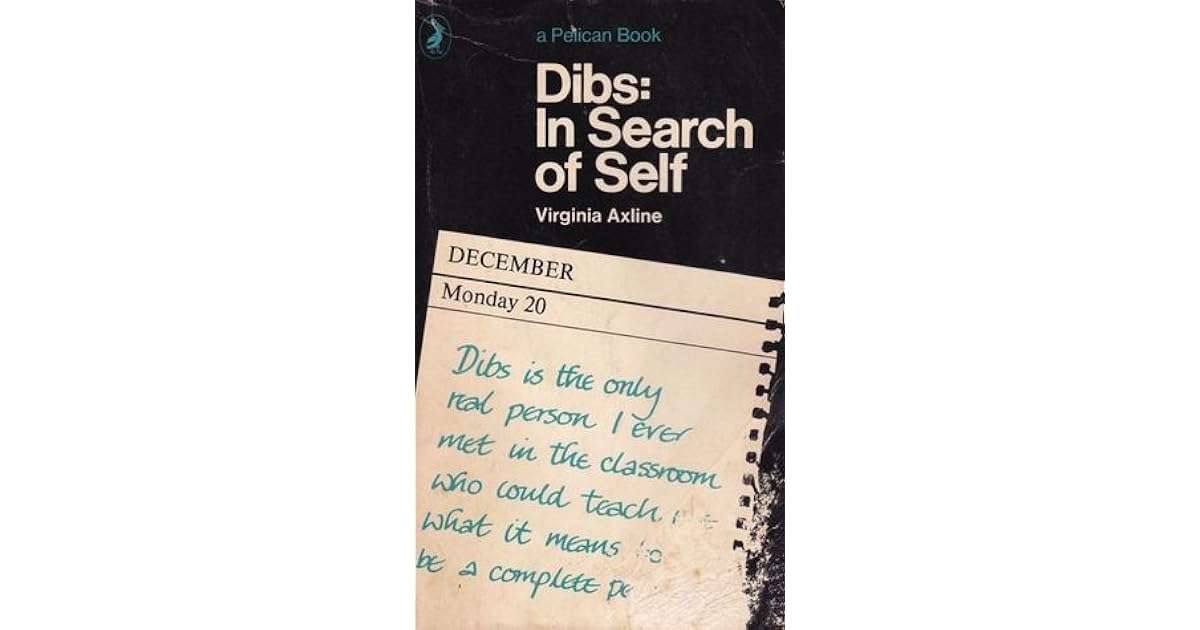 a Pelican Book
Dibs:
In Search
of Self
Virginia Axline
DECEMBER
Monday 20
Dibs is the only
real person I ever
met in the classroom
who could teach
what it means to
be a complete